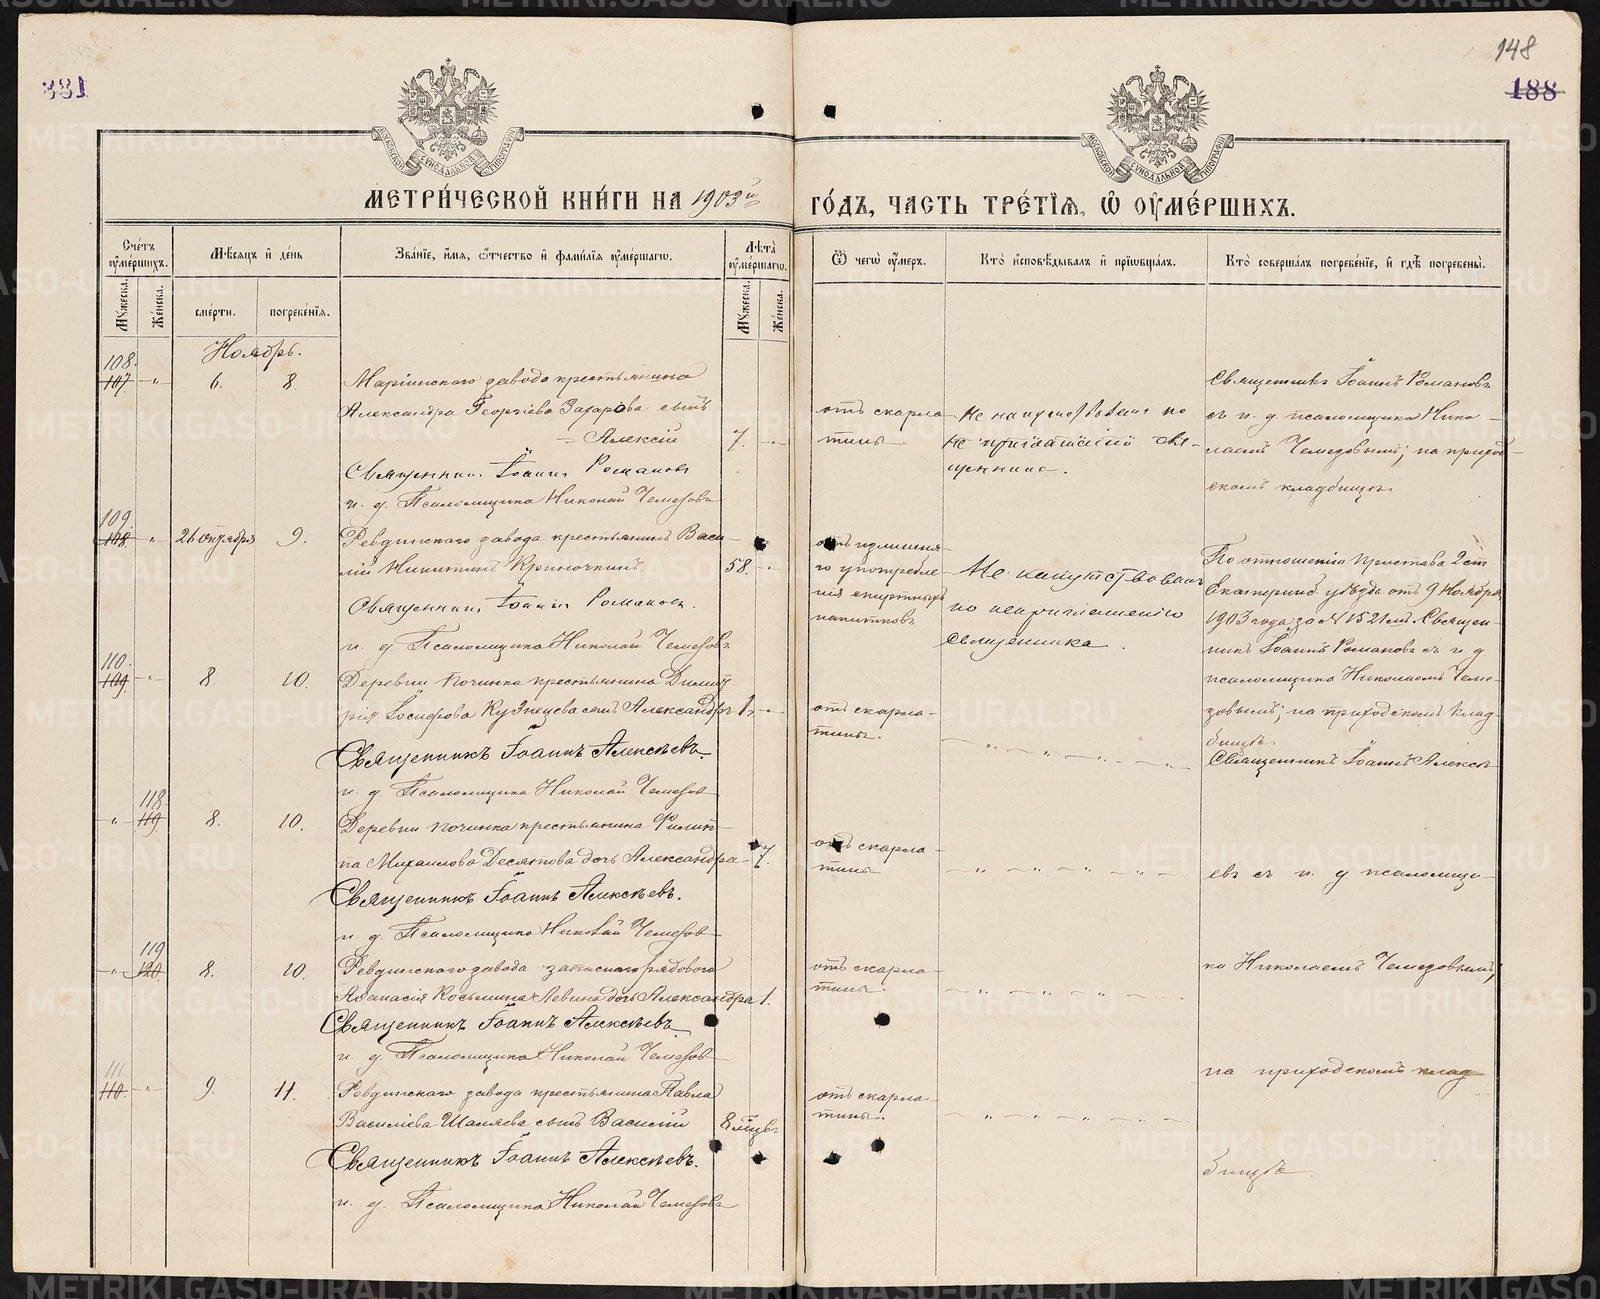 148
381
188
МЕТРИ́ЧЕСКОЙ КНИ́ГИ НА 1903й
ГО́ДЪ, ЧАСТЬ ТРЕ́ТІѦ, Ѡ ОУМЕ́РШИХЪ.
Сче́тъ оуме́ршихъ.
Мѣсяцъ и де́нь
Зва́ніе, и́мя, ѻтчество и фамилія оуме́ршагѡ.
Лѣта̀ оуме́ршагѡ.
Ѿ чегѡ̀ оу́меръ.
Кто̀ исповѣдывалъ и пріѡбща́лъ.
Кто̀ соверша́лъ погребе́ніе, и гдѣ погребены̀.
Мꙋжеска.
Же́нска.
сме́рти.
погребе́нія.
Мꙋжеска.
Же́нска.
Ноябрь.
108.
107 - " 6. 8.
Маріинскаго завода крестьянина
Александра Георгіева Захарова сынъ
Алексій 7. - " -
Священникъ Іоаннъ Романовъ
и. д. Псаломщика Николай Чемезовъ
отъ скарла-
тины
Не напутствованъ по
не приглашенію свя-
щенника.
Священникъ Іоаннъ Романовъ
съ и. д. псаломщика Нико-
лаемъ Чемезовымъ; на приход-
скомъ кладбищѣ.
109.
108. " 26 октября 9.
Ревдинскаго завода крестьянинъ Васи-
лій Никитинъ 58. - " -
Священникъ Іоаннъ Романовъ.
и. д. Псаломщика Николай Чемезовъ
отъ излишня-
го употребле-
нія спиртныхъ
напитковъ
Не напутствованъ
по неприглашенію
священника.
По отношенію Пристава 2 ст.
Екатеринб. уѣзда отъ 9 Ноября
1903 года за № 1521 мъ. Священ-
никъ Іоаннъ Романовъ съ и. д.
псаломщика Николаемъ Чеме-
зовымъ; на приходскомъ клад-
бищѣ.
110.
109. - " 8 10.
Деревни Починка крестьянина Димит-
рія Іосифова Кузнецова сынъ Александръ
Священникъ Іоаннъ Алексѣевъ.
и. д. Псаломщика Николай Чемезовъ
отъ скарла-
тины.
- " - " - " -
Священникъ Іоаннъ Алексѣ-
118.
" 119 8. 10.
Деревни Починка крестьянина Филип-
па Михаилова Десятова дочь Александра - 7.
Священникъ Іоаннъ Алексѣевъ.
и. д. Псаломщика Николай Чемезовъ
отъ скарла-
тины
- " - " - " - " -
евъ съ и. д. псаломщи-
119
- " - 120 8. 10.
Ревдинскаго завода запаснаго рядового
Аѳанасія Косьмина Левина дочь Александра 1.
Священникъ Іоаннъ Алексѣевъ
и. д. Псаломщика Николай Чемезовъ
отъ скарла-
тины.
- " - " - " -
ка Николаемъ Чемезовымъ;
111
110. - " 9. 11.
Ревдинскаго завода крестьянина Павла
Василіева Шаляева сынъ Василій 8 м҃цвъ
Священникъ Іоаннъ Алексѣевъ.
и. д. Псаломщика Николай Чемезовъ
отъ скарла-
тины.
- " - " - " - " -
на приходскомъ клад-
бищѣ.
METRIKI.GASO-URAL.RU